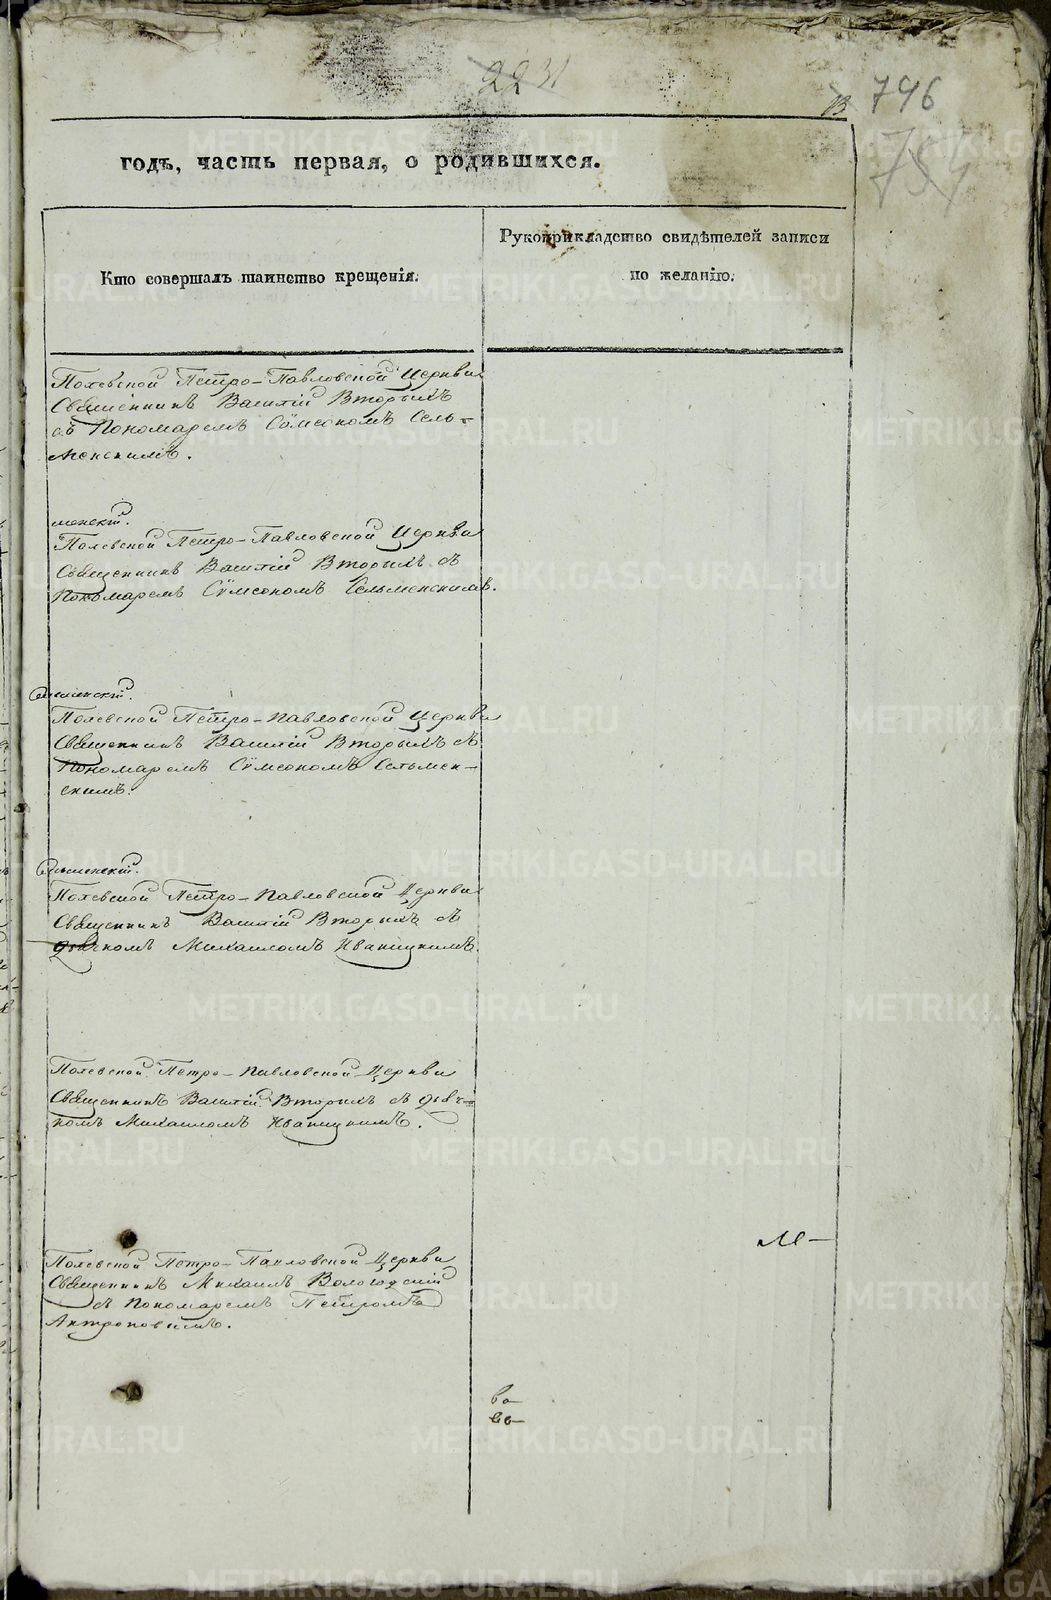 2231
13
796
757
годъ, часть первая, о родившихся.
Кто совершалъ таинство крещенія.
Рукоприкладство свидѣтелей записи
по желанію.
Полевской Петро-Павловской Церкви
Священникъ Василій Вторыхъ
съ Пономаремъ Сѵмеономъ Сель-
менскимъ.
менскій.
Полевской Петро-Павловской Церкви
Священникъ Василій Вторыхъ съ
Пономаремъ Сѵмеономъ Сельменскимъ.
Сельменскій.
Полевской Петро-Павловской Церкви
Священникъ Василій Вторыхъ съ
Пономаремъ Сѵмеономъ Сельмен-
скимъ.
Сельменскій.
Полевской Петро-Павловской Церкви
Священникъ Василій Вторыхъ съ
дьячкомъ Михаиломъ Иваницкимъ.
Полевской Петро-Павловской Церкви
Священникъ Василій Вторыхъ съ дьяч-
комъ Михаиломъ Иваницкимъ.
Полевской Петро-Павловской Церкви
Священникъ Михаилъ Вологодскій
съ Пономаремъ Петромъ
Антроповымъ.
METRIKI.GASO-URAL.RU